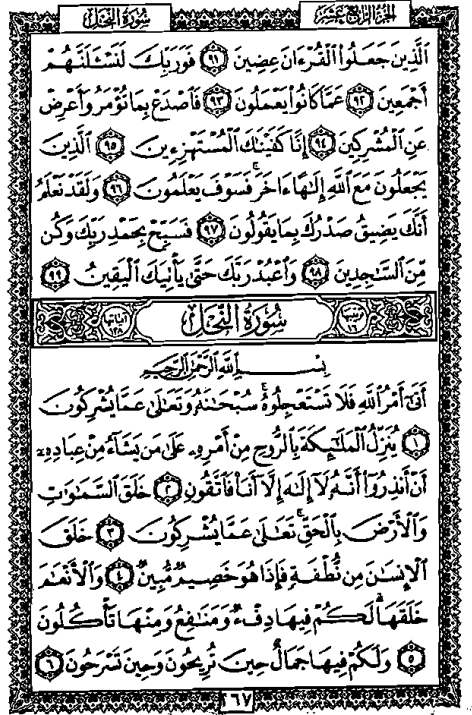 الجزء الرابع عشر سورة النحل
الذين جعلوا القرءان عضين ٩١ فوربك لنسـٔلنهم
أجمعين ٩٢ عما كانوا يعملون ٩٣ فاصدع بما تؤمر وأعرض
عن المشركين ٩٤ إنا كفينٰك المستهزءين ٩٥ الذين
يجعلون مع الله إلٰها ءاخر فسوف يعلمون ٩٦ ولقد نعلم
أنك يضيق صدرك بما يقولون ٩٧ فسبح بحمد ربك وكن
من السٰجدين ٩٨ واعبد ربك حتى يأتيك اليقين ٩٩
ترتيبها ١٦ سورة النحل آياتها ١٢٨
بسم الله الرحمٰن الرحيم
أتىٰ أمر الله فلا تستعجلوه سبحٰنه وتعٰلىٰ عما يشركون
١ ينزل الملٰئكة بالروح من أمره على من يشاء من عباده
أن أنذروا أنه لا إلٰه إلا أنا فاتقون ٢ خلق السمٰوٰت
والأرض بالحق تعٰلىٰ عما يشركون ٣ خلق
الإنسٰن من نطفة فإذا هو خصيم مبين ٤ والأنعٰم
خلقها لكم فيها دفء ومنٰفع ومنها تأكلون
٥ ولكم فيها جمال حين تريحون وحين تسرحون ٦
٢٦٧